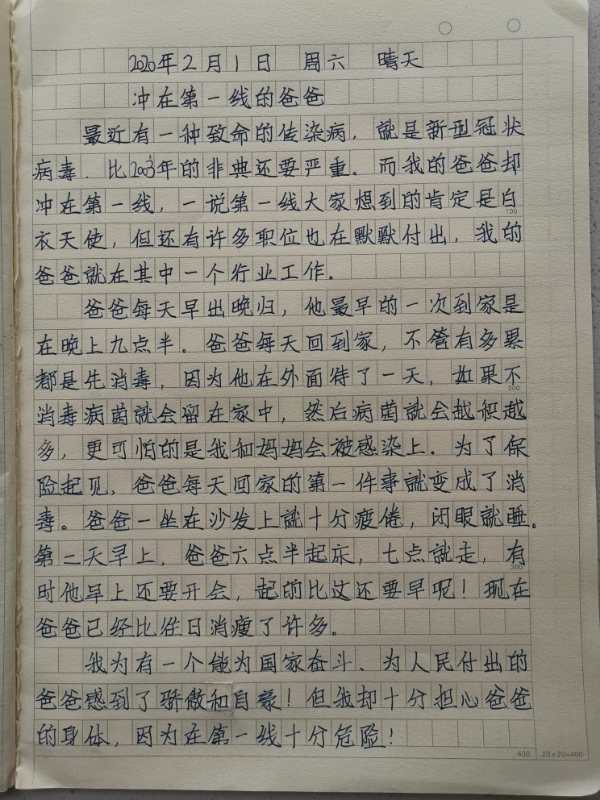 2020年2月1日 周六 晴天
冲在第一线的爸爸
最近有一种致命的传染病，就是新型冠状
病毒．比2003年的非典还要严重。而我的爸爸却
冲在第一线，一说第一线大家想到的肯定是白
100
衣天使，但还有许多职位也在默默付出，我的
爸爸就在其中一个行业工作．
爸爸每天早出晚归，他最早的一次到家是
在晚上九点半．爸爸每天回到家，不管有多累
都是先消毒，因为他在外面待了一天，如果不
200
消毒病菌就会留在家中，然后病菌就会越积越
多，更可怕的是我和妈妈会被感染上．为了保
险起见，爸爸每天回家的第一件事就变成了消
毒。爸爸一坐在沙发上就十分疲倦，闭眼就睡。
第二天早上，爸爸六点半起床，七点就走，有
300
时他早上还要开会，起的比这还要早呢！现在
爸爸已经比往日消瘦了许多。
我为有一个能为国家奋斗、为人民付出的
爸爸感到了骄傲和自豪！但我却十分担心爸爸
的身体，因为在第一线十分危险！
400 20×20=400